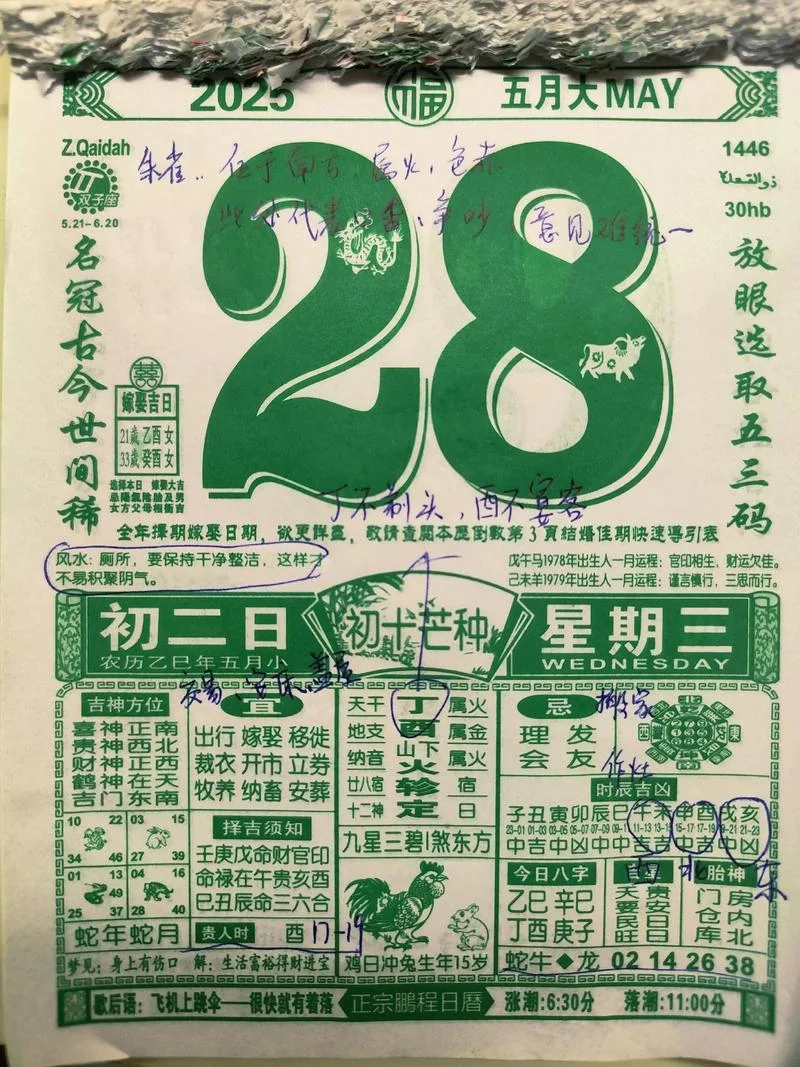 2025 福 五月大MAY
Z.Qaidah
双子座
5.21-6.20
1446
30hb
朱雀.. 位于南方,属火,色赤
此外代表口舌,争吵,意见难统一
28
名冠古今世间稀
放眼选取五三码
囍
嫁娶吉日
21歲 乙酉 女
33歲 癸酉 女
选择本日 嫁娶大吉
女方父母相衝吉
丁不剃头,酉不宴客
全年择期嫁娶日期,欲更详尽,敬请查阅本历倒数第3頁結婚佳期快速導引表
风水:厕所,要保持干净整洁,这样才
不易积聚阴气。
戊午马1978年出生人一月运程:官印相生,财运欠佳。
己未羊1979年出生人一月运程:谨言慎行,三思而行。
初二日
农历乙巳年五月小
初十芒种
星期三
WEDNESDAY
吉神方位
喜神正南
贵神西北
财神正西
鹤神在天
吉门东南
交易、安床、盖屋
宜
出行 嫁娶 移徙
裁衣 开市 立券
牧养 纳畜 安葬
天干 丁 属火
地支 酉 属金
纳音 山下火 属火
廿八宿 轸 宿
十二神 定 日
九星三碧 煞东方
忌
搬家
理发
会友
作灶
时辰吉凶
子丑寅卯辰巳午未申酉戌亥
23-01 01-03 03-05 05-07 07-09 09-11 11-13 13-15 15-17 17-19 19-21 21-23
南 北 东
10 22 34 46
03 15 27 39
01 13 25 37 49
04 16 28 40
蛇年蛇月
择吉须知
壬庚戊命财官印
命禄在午贵亥酉
巳丑辰命三六合
贵人时 酉 17-19
鸡日冲兔生年15岁
今日八字
乙巳 辛巳
丁酉 庚子
胎神
门 房
仓 内
库 北
蛇牛◆龙 02 14 26 38
梦见:身上有伤口 解:生活富裕得财进宝
歇后语:飞机上跳伞——很快就有着落
正宗鵬程日曆
涨潮:6:30分 落潮:11:00分